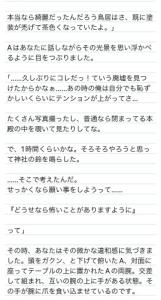 本当なら綺麗だったんだろう鳥居はさ、既に
塗装が禿げて茶色くなっていたよ。」
Aはあなたに話しながらその光景を思い浮かべ
るように目をつぶりました。
「……久しぶりにコレだっ！ていう廃墟を見つ
けたからかなぁ……あの時の俺は自分でも恥ず
かしいくらいにテンションが上がってさ…
たくさん写真撮ったし、普通なら閉まってる本
殿の中を覗いて見たりしてな。
で、1時間くらいかな。そろそろやろうと思っ
て神社の鈴を鳴らした。
……そこで考えたんだ。
せっかくなら願い事をしようって……
『どうせなら怖いことがありますように』
って」
その時、あなたはその微かな違和感に気づきま
した。頭をガクン、と下げて俯いたA。対面に
座ってテーブルの上に置かれたAの両腕。交差
して組まれ、互いの腕の上に手がある状態。そ
の手が腕に爪を食い込ませているのです。